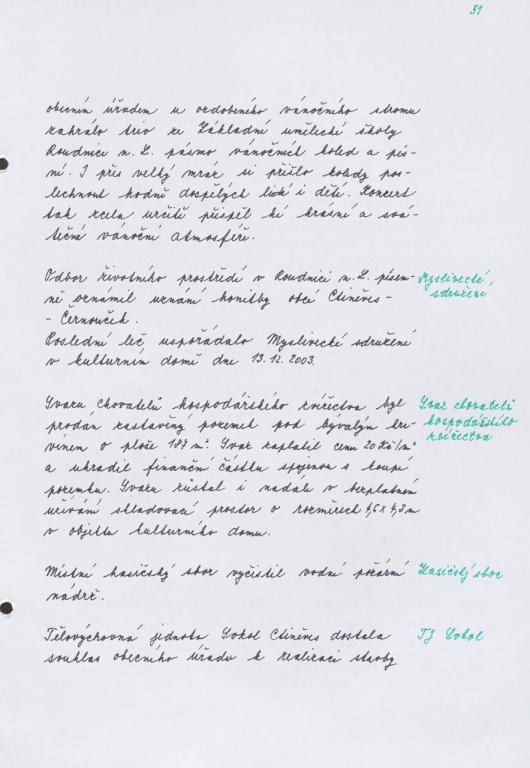 51
obecním úřadem u ozdobeného vánočního stromu
zahrálo trio ze Základní umělecké školy
Roudnice n. L. pásmo vánočních koled a pís-
ní. I přes velký mráz si přišlo koledy pos-
lechnout hodně dospělých lidí i dětí. Koncert
tak zcela určitě přispěl ke krásné a svá-
tečné vánoční atmosféře.
Odbor životního prostředí v Roudnici n. L. písem-
ně oznámil uznání honitby obcí Ctiněves-
- Černouček.
Myslivecké
sdružení
Poslední leč uspořádalo Myslivecké sdružení
v kulturním domě dne 13. 12. 2003.
Svazu chovatelů hospodářského zvířectva byl
prodán zastavěný pozemek pod bývalým kra-
vínem o ploše 187 m². Svaz zaplatil cenu 20 Kč/m²
a uhradil finanční částku spojenou s koupí
pozemku. Svazu zůstal i nadále v bezplatném
užívání skladovací prostor o rozměrech 4,6 x 4,3 m
v objektu kulturního domu.
Svaz chovatelů
hospodářského
zvířectva
Místní hasičský sbor vyčistil vodní požární
nádrž.
Hasičský sbor
Tělovýchovná jednota Sokol Ctiněves dostala
souhlas obecního úřadu k realizaci stavby
TJ Sokol